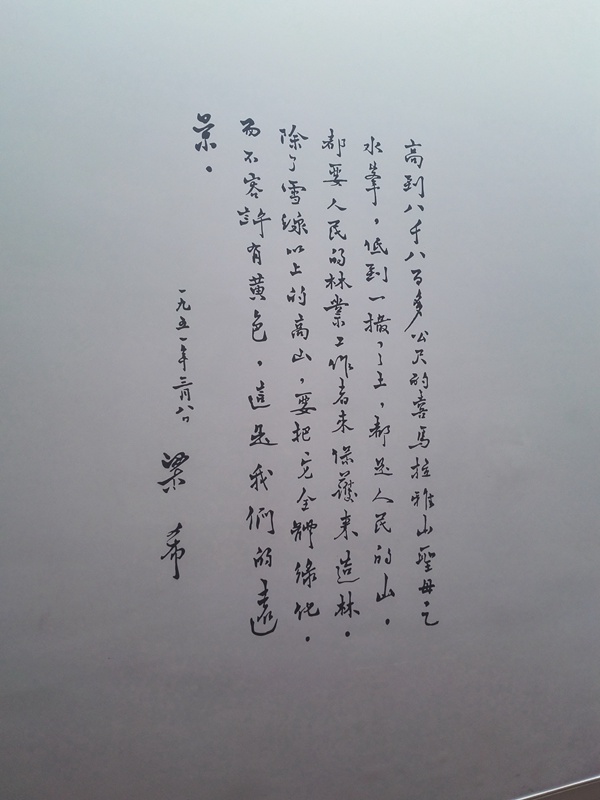 高到八千八百多公尺的喜馬拉雅山聖母之
水峯，低到一撮之土，都是人民的山。
都要人民的林業工作者來保護來造林。
除了雪線以上的高山，要把它全部綠化。
而不容許有黃色，這是我們的遠
景。
一九五一年三月八日
梁希